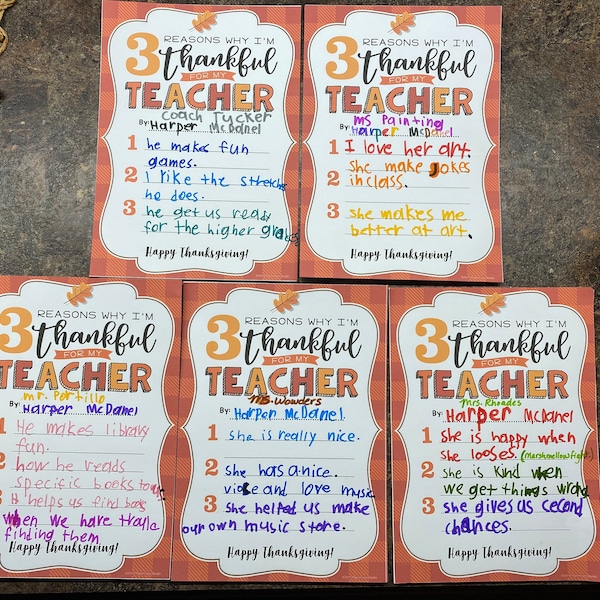 3 REASONS WHY I'M
thankful
FOR MY
TEACHER
Coach Tucker
BY: Harper McDanel
1 he makes fun
games.
2 I like the stretches
he does.
3 he get us ready
for the higher grades
Happy Thanksgiving!
3 REASONS WHY I'M
thankful
FOR MY
TEACHER
ms Painting
BY: Harper McDanel
1 I love her art.
2 She make jokes
in class.
3 she makes me
better at art.
Happy Thanksgiving!
3 REASONS WHY I'M
thankful
FOR MY
TEACHER
mr. Portillo
BY: Harper McDanel
1 He makes library
fun.
2 how he reads
specific books to us
3 helps us find books
when we have trale
finding them
Happy Thanksgiving!
3 REASONS WHY I'M
thankful
FOR MY
TEACHER
Ms. Wonders
BY: Harper McDanel
1 she is really nice.
2 she has a nice.
voice and love music
3 she helped us make
our own music store.
Happy Thanksgiving!
3 REASONS WHY I'M
thankful
FOR MY
TEACHER
Mrs. Rhoades
BY: Harper McDanel
1 she is happy when
she looses. (Marshmellow fight)
2 she is kind when
we get things wrong
3 she gives us cecond
chances.
Happy Thanksgiving!